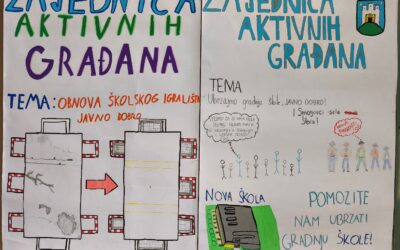 ZAJEDNICA
AKTIVNIH
GRAĐANA
TEMA: OBNOVA ŠKOLSKOG IGRALIŠTA
JAVNO DOBRO
ZAJEDNICA
AKTIVNIH
GRAĐANA
TEMA
Ubrzajmo gradnju škole, JAVNO DOBRO!
NOVA ŠKOLA
POMOZITE
NAM UBRZATI
GRADNJU ŠKOLE!